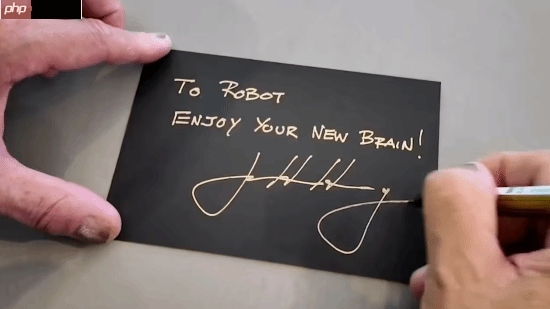 php
To Robot
Enjoy Your New Brain!